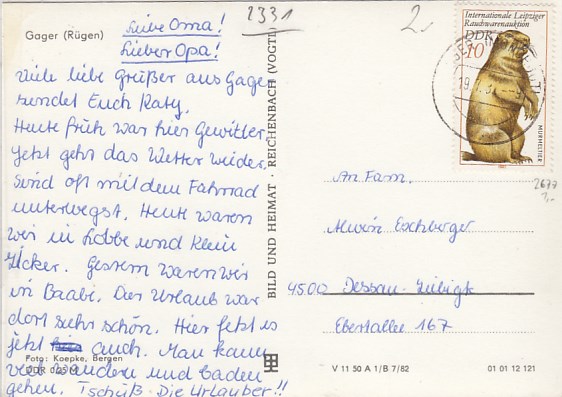 2331
2,-
Gager (Rügen)
Liebe Oma!
Lieber Opa!
Viele liebe Grüßer aus Gager
sendet Euch Katy.
Heute früh war hier Gewitter,
jetzt gehts das Wetter wieder.
Sind oft mit dem Fahrrad
unterwegst. Heute waren
wir in Lobbe und Klein
Zicker. Gestern waren wir
in Baabe. Der Urlaub war
dort sehr schön. Hier ist es
jetzt auch. Man kann
viel wandern und baden
gehen. Tschüß Die Urlauber!!
Foto: Koepke, Bergen
DDR
BILD UND HEIMAT · REICHENBACH (VOGTL)
Internationale Leipziger
Rauchwarenauktion
DDR
10
MURMELTIER
2677
1,-
An Fam.
Alwin Eschberger
4500 Dessau-Ziebigk
Ebertallee 167
V 11 50 A 1/B 7/82
01 01 12 121